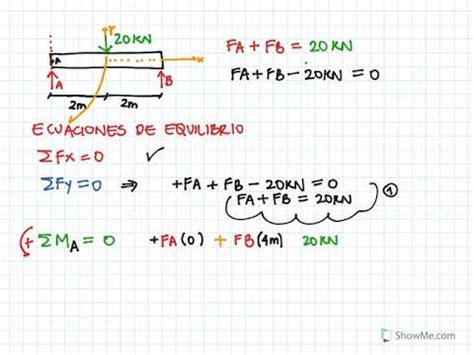 Y
20KN
A
x
A
B
2m
2m
FA + FB = 20KN
FA + FB - 20KN = 0
ECUACIONES DE EQUILIBRIO
ΣFx = 0 ✓
ΣFy = 0 ⇒ +FA + FB - 20KN = 0
FA + FB = 20KN ①
+ ΣMA = 0 +FA(0) + FB(4m) 20KN
ShowMe.com